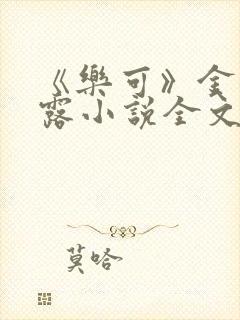 《樂可》金
露小說全文
莫哈